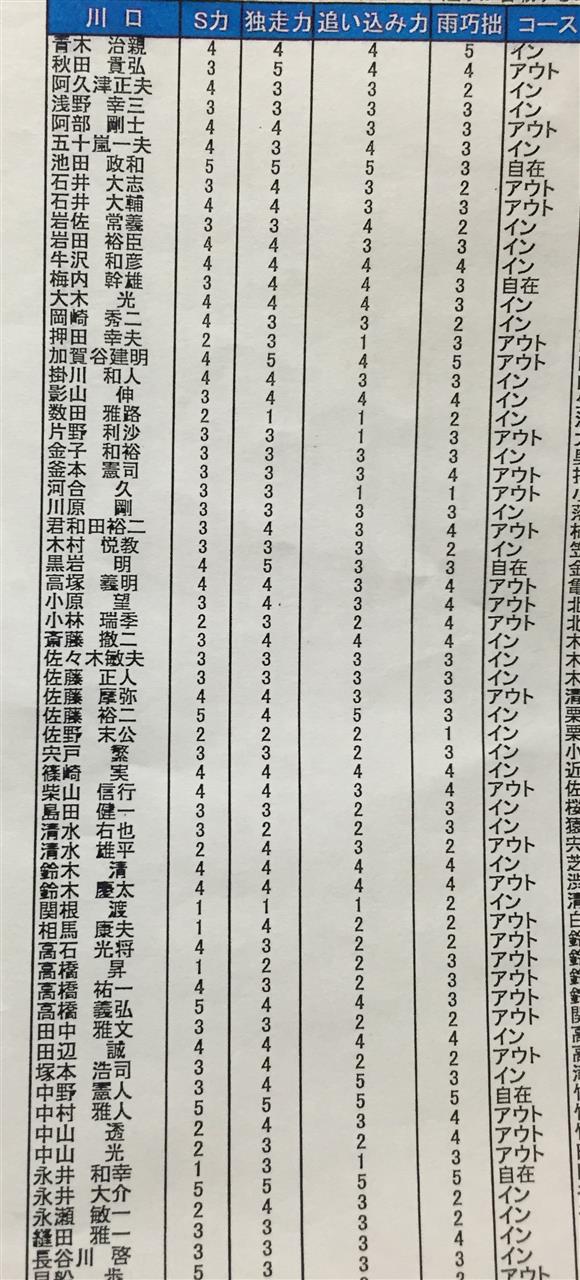 川口 S力 独走力 追い込み力 雨巧拙 コース
青木 治親 4 4 4 5 イン
秋田 貴弘 3 5 4 4 アウト
阿久津正夫 4 3 3 2 イン
浅野 幸三 3 3 3 3 イン
阿部 剛士 4 4 3 3 アウト
五十嵐一夫 4 3 4 3 イン
池田 政和 5 5 5 3 自在
石井 大志 3 4 3 2 アウト
石井 大輔 4 4 3 3 アウト
岩佐 常義 3 3 4 2 イン
岩田 裕臣 4 4 3 3 イン
牛沢 和彦 4 4 4 4 イン
梅内 幹雄 3 4 4 3 自在
大木 光 4 4 4 3 イン
岡崎 秀二 4 3 3 2 イン
押田 幸夫 2 3 1 3 アウト
加賀谷建明 4 5 4 5 アウト
掛川 和人 4 4 3 3 イン
影山 伸 3 4 4 4 イン
数田 雅路 2 1 1 2 イン
片野 利沙 3 3 1 3 アウト
金子 和裕 3 3 3 3 イン
釜本 憲司 3 3 3 4 アウト
河合 久 3 3 1 1 アウト
川原 剛 3 3 3 3 イン
君和田裕二 3 4 3 4 アウト
木村 悦教 3 3 3 2 イン
黒岩 明 4 5 3 3 自在
高塚 義明 4 4 3 4 アウト
小原 望 3 4 3 4 アウト
小林 瑞季 2 3 2 4 アウト
斎藤 撤二 3 4 4 4 イン
佐々木敏夫 3 3 3 3 イン
佐藤 正人 3 3 3 3 イン
佐藤 摩弥 4 4 3 3 アウト
佐藤 裕二 5 4 5 3 イン
佐野 末公 2 2 2 1 イン
宍戸 繁 3 3 2 3 イン
篠崎 実 4 4 4 4 イン
柴山 信行 4 4 3 4 アウト
島田 健一 3 3 2 3 イン
清水 右也 3 2 2 3 イン
清水 雄平 2 4 3 2 アウト
鈴木 清 4 4 4 4 イン
鈴木 慶太 4 4 4 4 アウト
関根 渡 1 1 1 2 イン
相馬 康夫 1 4 2 2 アウト
高石 光将 4 3 2 2 アウト
高橋 昇 1 2 2 3 アウト
高橋 祐一 4 3 2 3 アウト
高橋 義弘 5 4 4 3 アウト
田中 雅文 3 3 2 2 アウト
田辺 誠 4 4 4 4 イン
塚本 浩司 3 4 2 2 アウト
中野 憲人 3 4 5 3 イン
中村 雅人 5 5 5 5 自在
中山 透 2 4 3 4 アウト
中山 光 2 3 2 4 アウト
永井 和幸 1 3 1 3 アウト
永井 大介 5 5 5 5 自在
永瀬 敏一 2 4 3 2 イン
縫田 雅一 3 3 3 2 イン
長谷川 啓 3 3 3 4 イン
歩 5 3 3 3 アウト